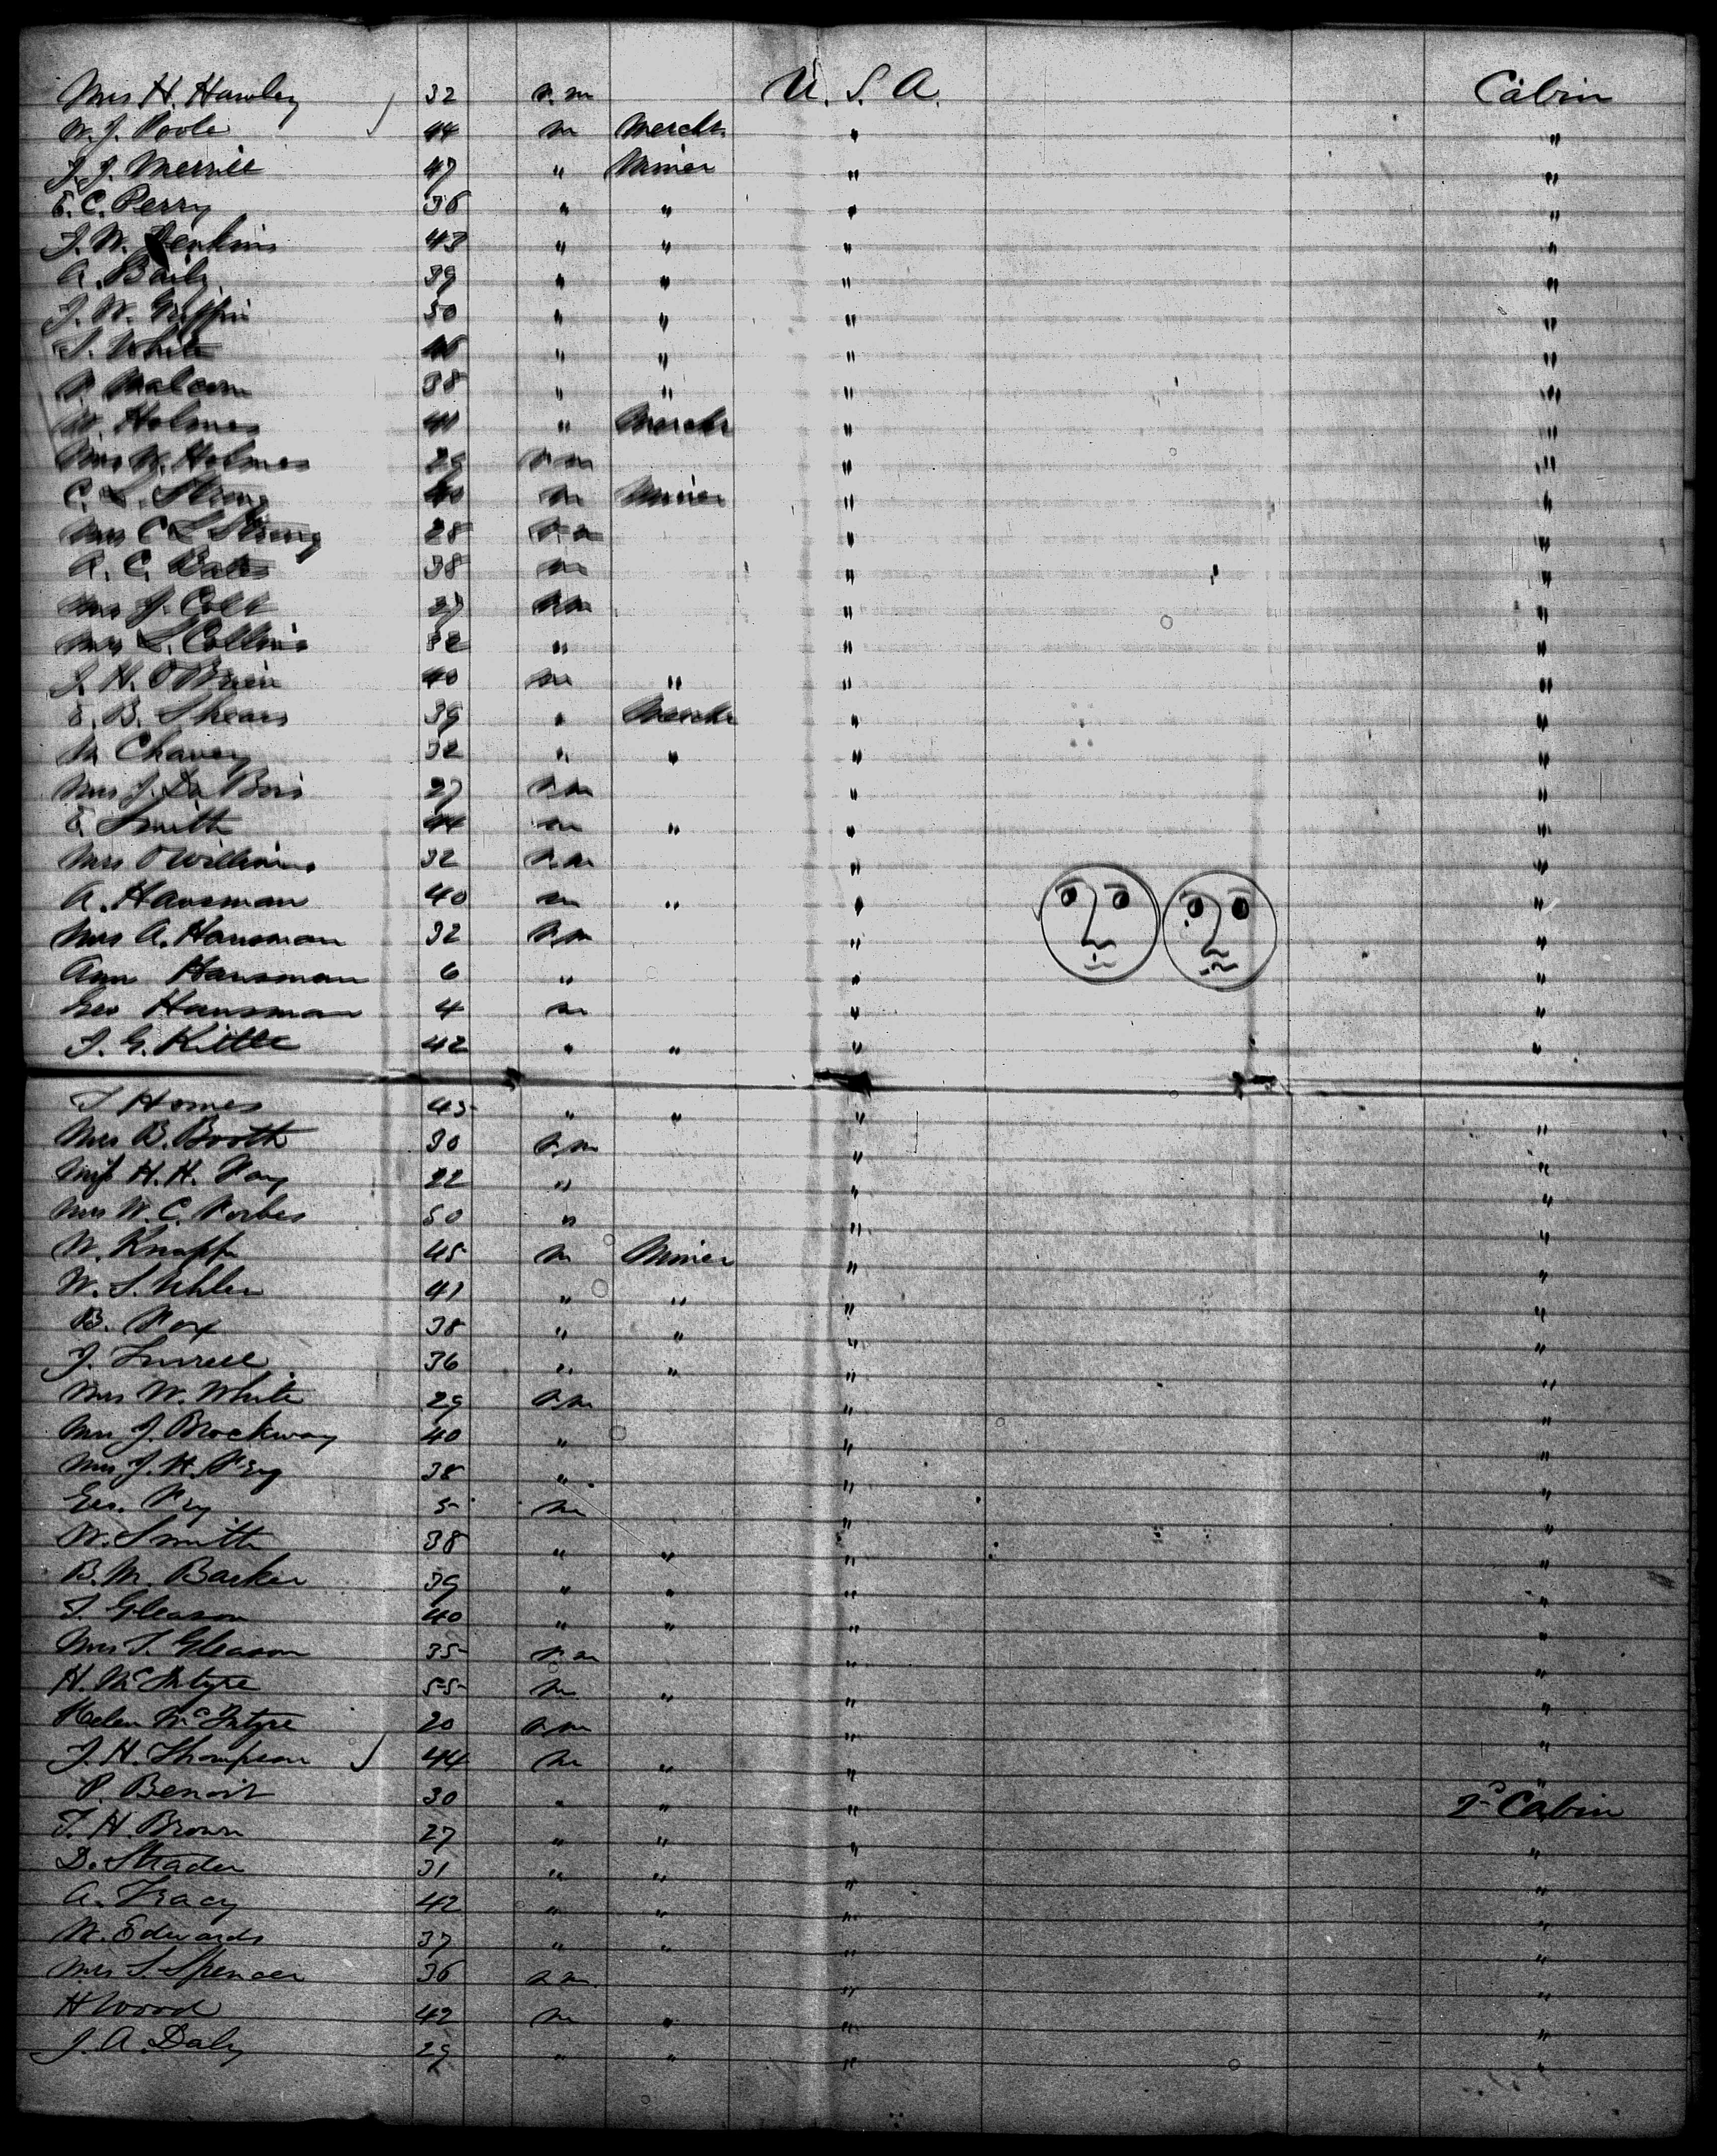 Mrs H. Hawley 32 U. S. A. Cabin
W. J. Poole 44 m Merch "  "
J. J. Merrill 47 " Miner " "
E. C. Perry 36 " " " "
J. W. Jenkins 43 " " " "
A. Baily 39 " " " "
J. W. Griffin 50 " " " "
S. White " " " "
Malcom 38 " " " "
W. Holmes 41 " Merch " "
Mrs W. Holmes 29 " "
C. L. Strong 40 m Miner " "
Mrs C L Strong 28 " "
A. C. Bates 38 m " "
Mrs J. Colt 27 " "
Mrs S. Collins 32 " " "
J. H. O'Brien 40 m " " "
E. B. Shears 39 " Merch " "
M Chavey 32 " " " "
Mrs J. Du Bois 27 " "
E Smith 44 m " " "
Mrs O Williams 32 " "
A. Hausman 40 m " " "
Mrs A. Hausman 32 " "
Ann Hausman 6 " " "
Geo Hausman 4 m " "
J. G. Kittle 42 " " " "
T Homes 45 " " " "
Mrs B. Booth 30 " "
Miss H. H. Fay 22 " " "
Mrs W. C. Forbes 50 " " "
W. Knapp 45 m Miner " "
W. S. Uhler 41 " " " "
B. Fox 38 " " " "
J. Turrell 36 " " " "
Mrs W. White 29 " "
Mrs J. Brockway 40 " " "
Mrs J. H. Frey 38 " " "
Geo. Fry 5 m " "
W. Smith 38 " " " "
B. M Barker 39 " " " "
T. Gleason 40 " " " "
Mrs T. Gleason 35 " "
H. McIntyre 55 m " " "
Helen McIntyre 20 " "
J. H. Thompson 44 m " " "
P. Benoit 30 " " " 2d Cabin
T. H. Brown 27 " " " "
D. Strader 31 " " " "
A. Tracy 42 " " " "
W. Edwards 37 " " " "
Mrs S. Spencer 36 " "
H Wood 42 m " " "
J. A. Daly 29 " " " "